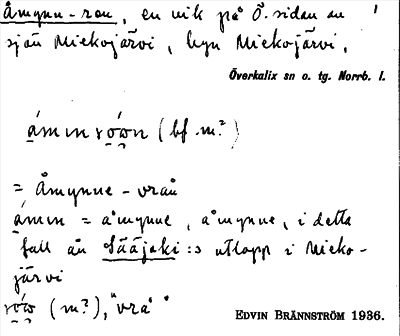 Åmynn-ron, en vik på Ö. sidan av
sjön Miekojärvi, byn Miekojärvi.
Överkalix sn o. tg. Norrb. l.
(bf. m.?)
= Åmynne-vrån
ámin = åmynne, åmynne, i detta
fall ån Sääjoki:s utlopp i Mieko-
järvi
(m.?), "vrå"
EDVIN BRÄNNSTRÖM 1936.